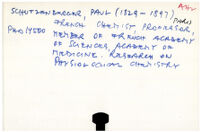 SCHUTZENBERGER, PAUL (1829-1897) PARIS
FRENCH CHEMIST, PROFESSOR,
MEMBER OF FRENCH ACADEMY
OF SCIENCES, ACADEMY OF
MEDICINE. RESEARCH ON
PHYSIOLOGICAL CHEMISTRY